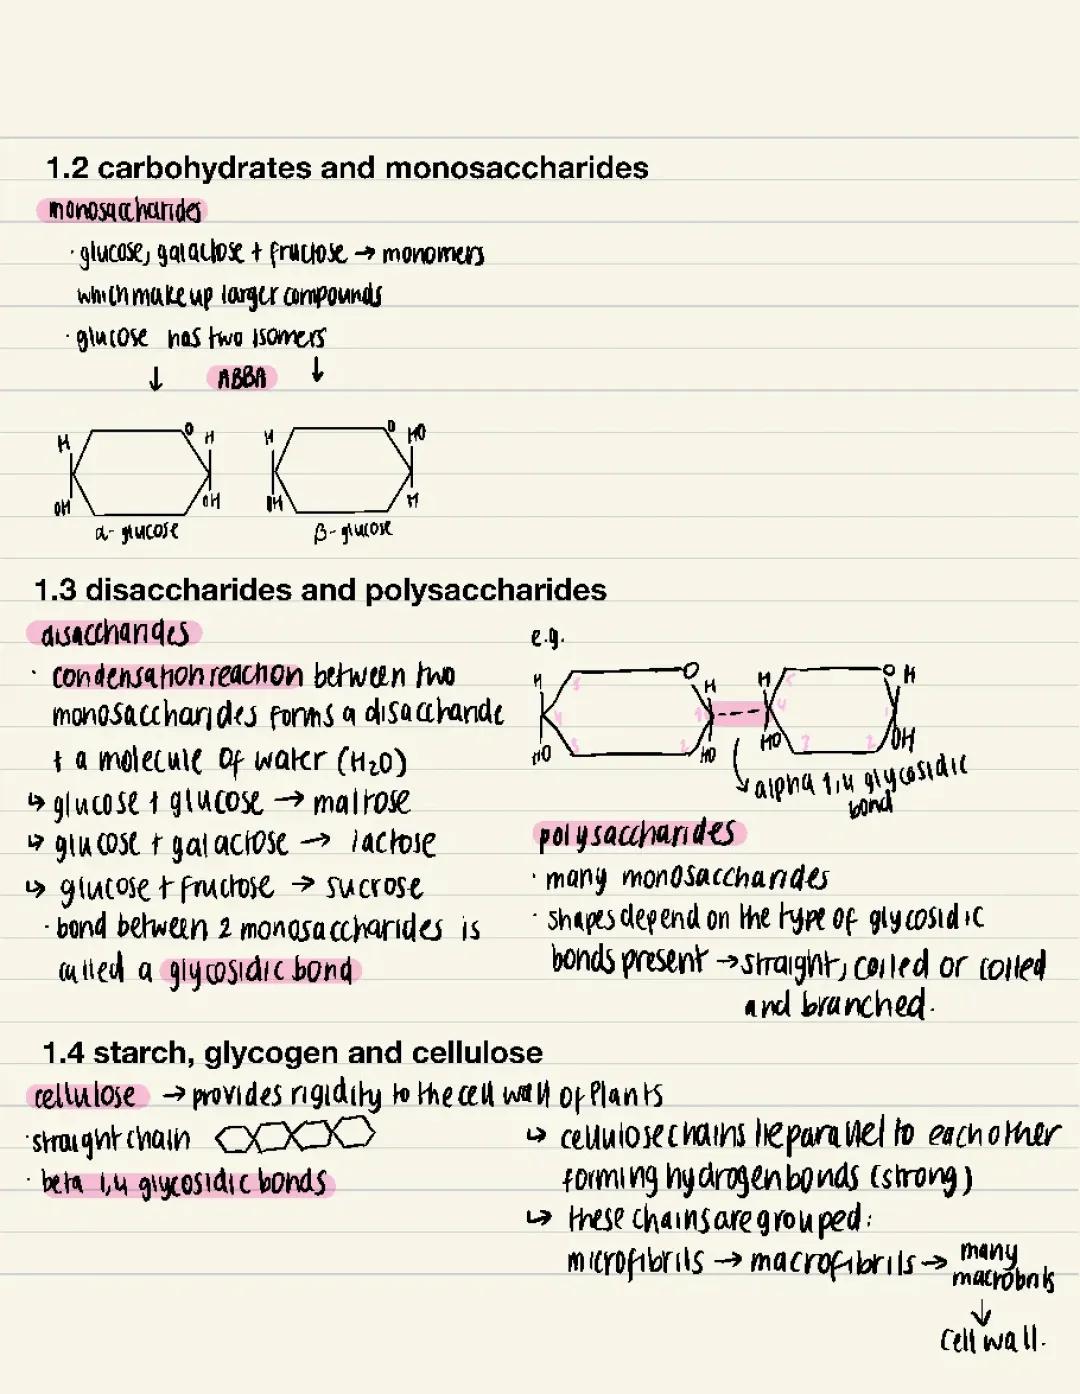 1.2 carbohydrates and monosaccharides
monosaccharides
· glucose, galactose + fructose → monomers
which make up larger compounds
· glucose has two isomers
↓ ABBA ↓
H O H H O HO
OH OH OH H
α- glucose β- glucose
1.3 disaccharides and polysaccharides
disaccharides
· condensation reaction between two
monosaccharides forms a disaccharide
+ a molecule of water (H₂O)
↳ glucose + glucose → maltose
↳ glucose + galactose → lactose
↳ glucose + fructose → sucrose
· bond between 2 monosaccharides is
called a glycosidic bond
e.g.
H 5 O H H 5 O H
4 1 4 1
HO 3 2 HO HO 3 2 OH
↳ alpha 1,4 glycosidic
bond
polysaccharides
· many monosaccharides
· shapes depend on the type of glycosidic
bonds present → straight, coiled or coiled
and branched.
1.4 starch, glycogen and cellulose
cellulose → provides rigidity to the cell wall of plants
· straight chain
· beta 1,4 glycosidic bonds
↳ cellulose chains lie parallel to each other
forming hydrogen bonds (strong)
↳ these chains are grouped:
microfibrils → macrofibrils → many
macrobrils
↓
cell wall.